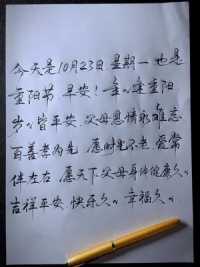 今天是10月23日 星期一 也是
重阳节 早安！重々逢重阳
岁々皆平安 父母恩情永难忘
百善孝为先 愿时光不老 爱常
伴左右 愿天下父母身体健康久々
吉祥平安 快乐久々 幸福久々